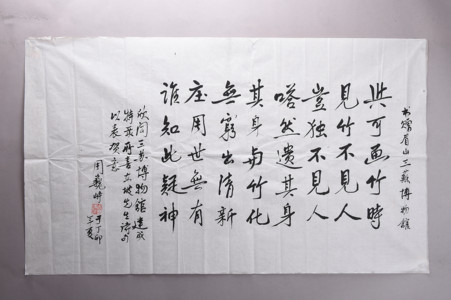 书赠眉山三苏博物馆
与可画竹时
见竹不见人
岂独不见人
嗒然遗其身
其身与竹化
無窮出清新
庄周世無有
谁知此疑神
欣闻三苏博物館建成
特录
东坡先生诗
以表贺意
周
于丁卯